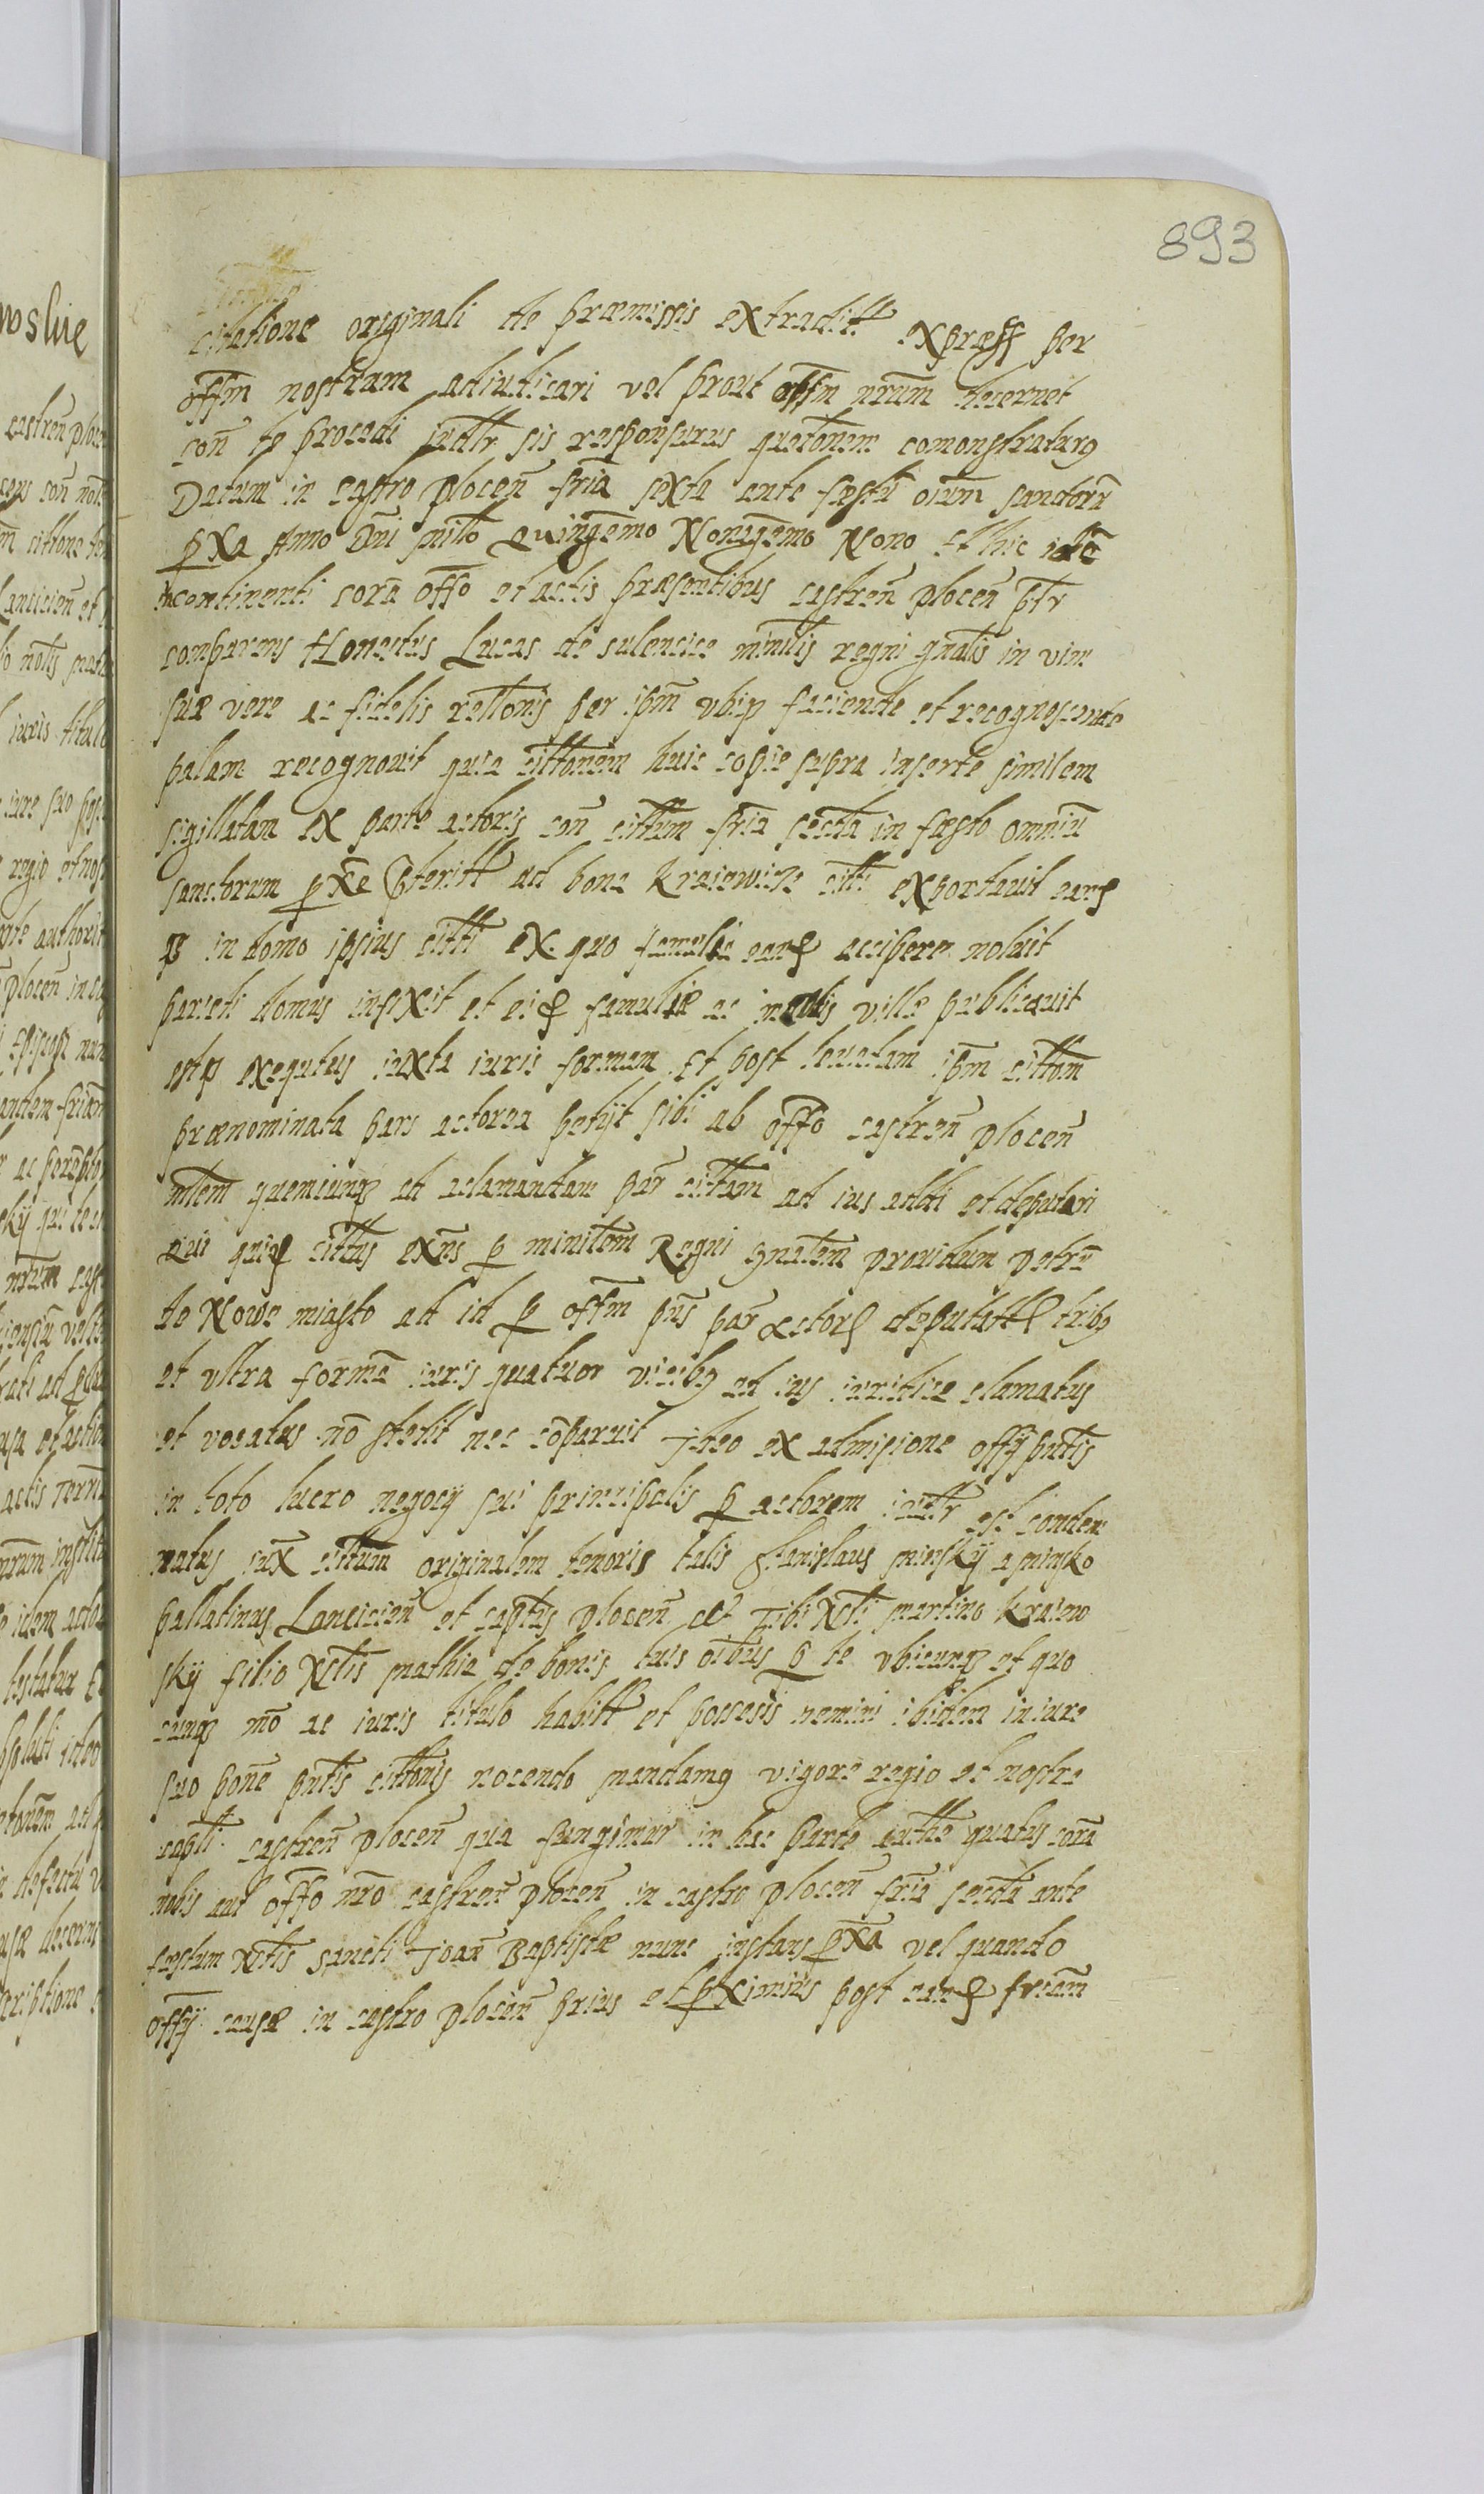 893
citatione originali de præmissis extraditt expræss per
offm nostrum adiudicari vel prout offm nrum decernet
con te procedi iudtr sis responsurus quetonem comonstraturg
Datum in castro plocen fria sexta ante festu oium sanctoru
pxa Anno Dni millo quingemo Nonagemo Nono Et hic ide
incontinenti cora offo et actis præsentibus castren plocen ptr
comparens Honestus Lucas de sulencice minilis regni gnalis in vim
suæ vere ac fidelis rellonis per ipm vbiq faciende et recognoscende
palam recognouit quia cittonem huic copie supra inserte similem
sigillatam ex parte actoris con cittum fria secda in festo omniu
sanctorum pxe pteritt ad bona Kraiewicze citti exportauit eand
q in domo ipsius citti ex quo famulia eand accipere noluit
parieti domus infixit et eid famuliæ ac incolis villæ publicauit
estq exequtus iuxta iuris formam Et post leuatam ipm cittom
prænominata pars actorea petijt sibi ab offo castren plocen
mlem quemcunq ad aclamandam par cittam ad ius addi et deputari
Qui quid cittus exns p minilem Regni gnalem prouidum petru
de Nowe miasto ad id p offm pns par actore deputatt tribg
et vltra forma iuris quatuor vicibg ad ius iuridice clamatus
et vocatus no stetit nec coparuit Ideo ex admisione offij pntis
in toto lucro negocij sui principalis p actorem iudtr est condem
natus iux cittum originalem tenoris talis Stanislaus minskij a minsko
pallatinus Lancicien et captus plocen etc Tibi Nbli martino Kraiew
skij filio Nblis mathiæ de bonis tuis oibus p te vbicunq et quo
cunq mo ac iuris titulo habitt et possesis nemini ibidem in iure
suo pone pntis cittonis nocendo mandamg vigore regio et nostra
capti castren plocen qua fungimur in hac parte autte quatus cora
nobis aut offo nro castren plocen in castro plocen fria secda ante
festum Nblis sancti Joan Baptistæ nunc instans pxa vel quando
offij causæ in castro plocen prius et pximius post eand friam